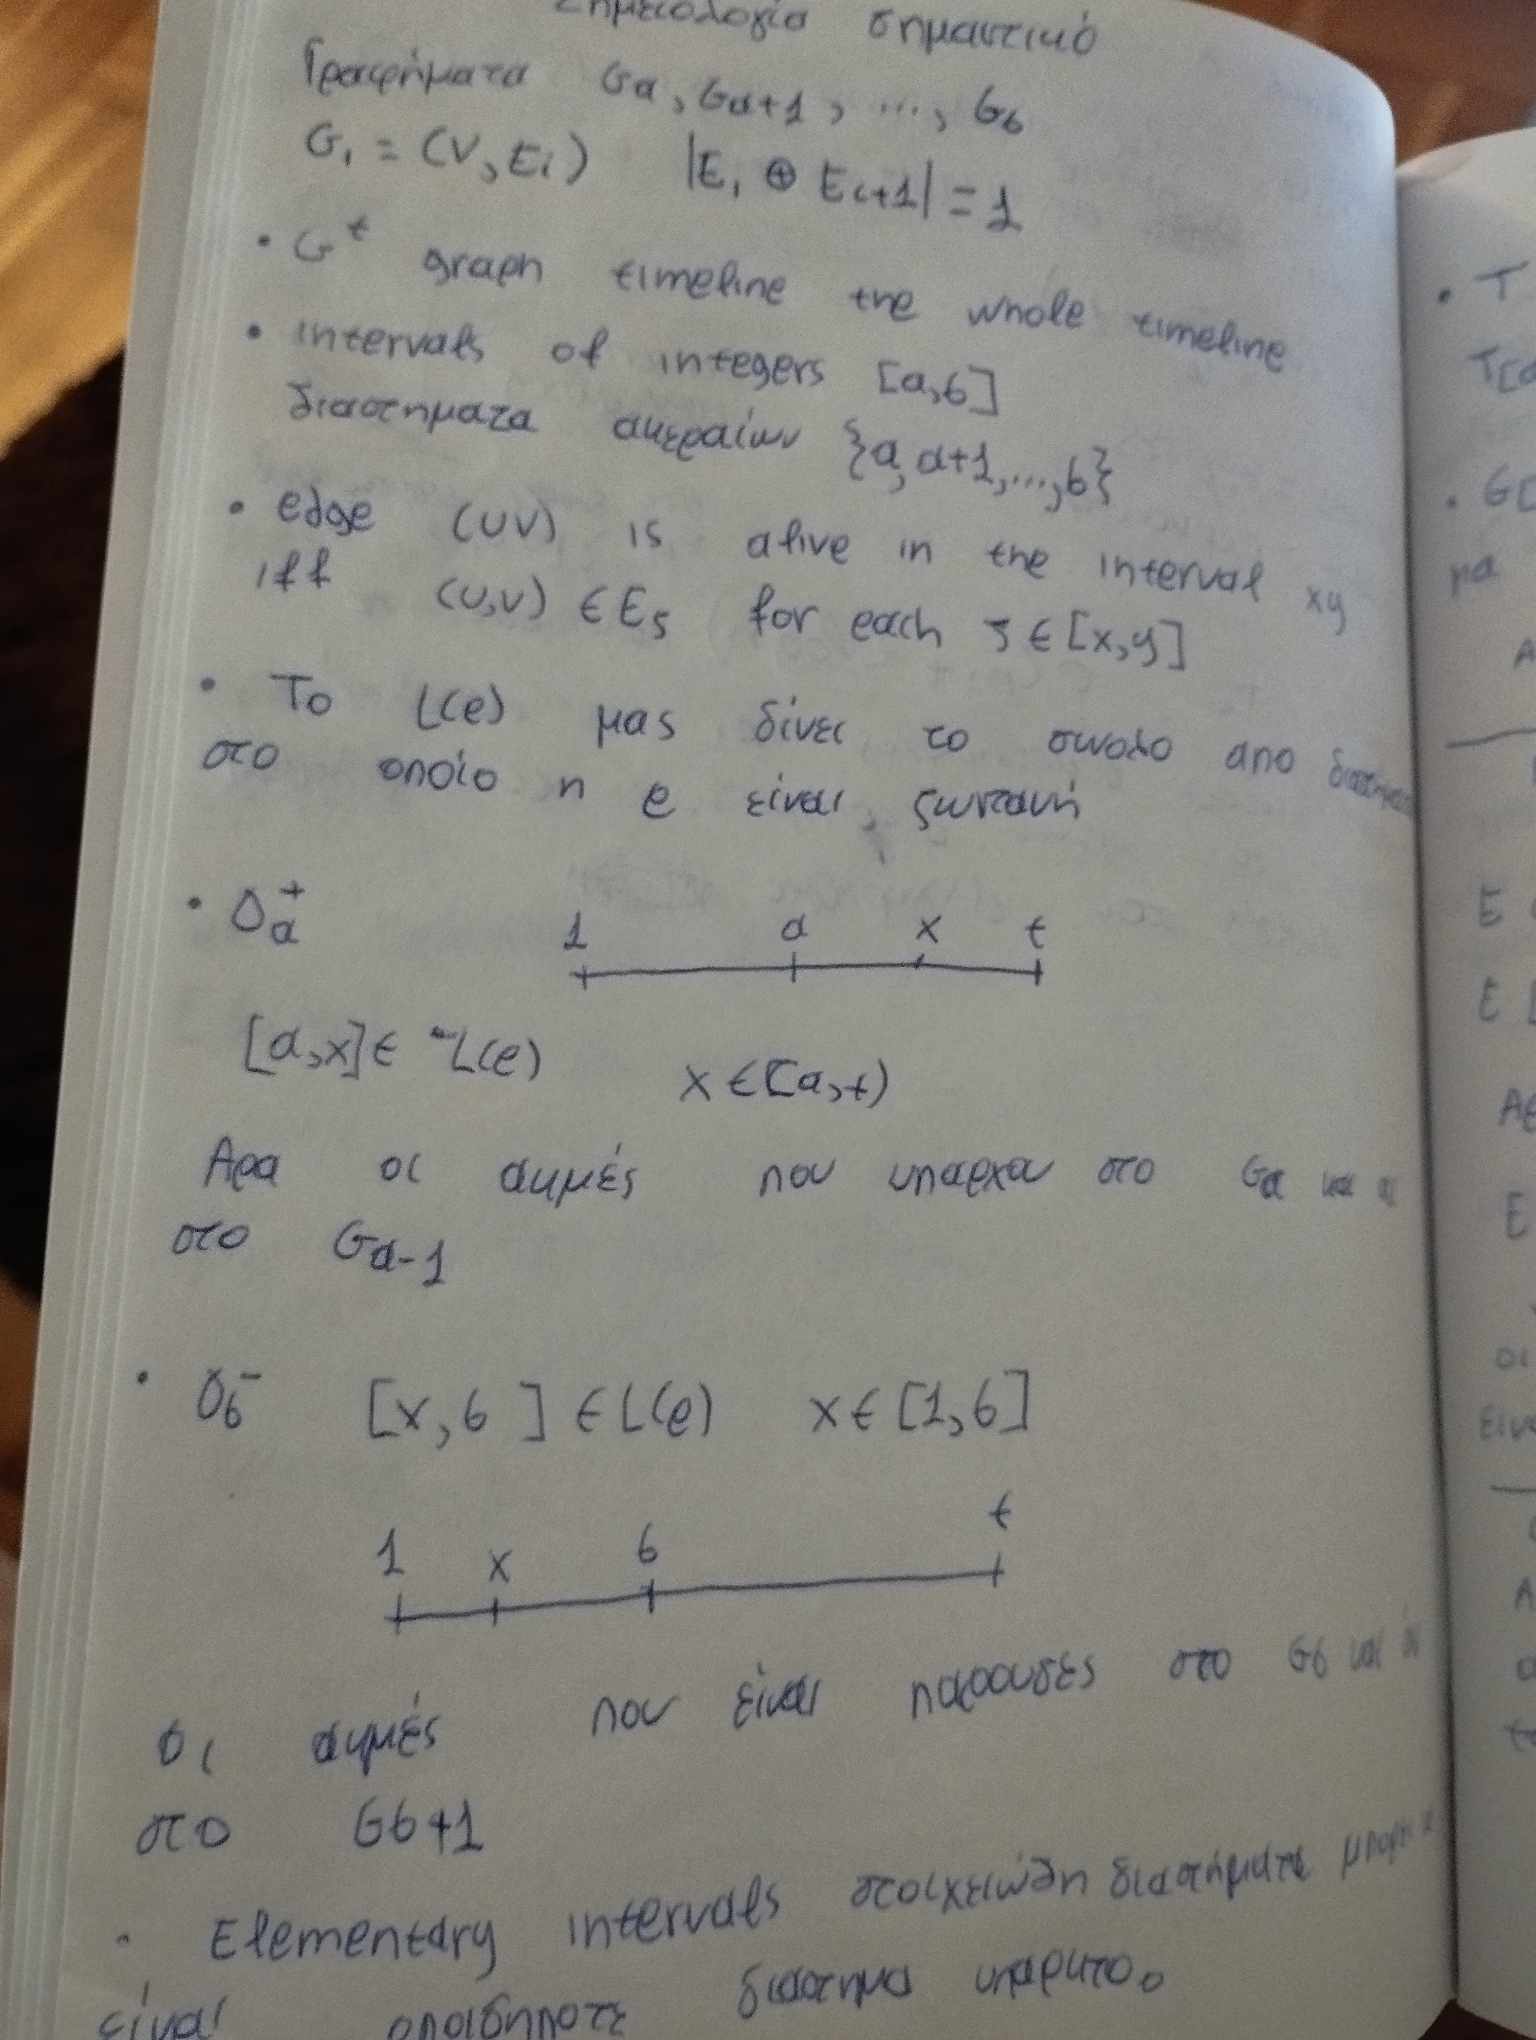 Σημειολογία σημαντικό
Γραφήματα Gα, Gα+1, ..., Gb
Gi = (V, Ei) |Ei ⊕ Ei+1| = 1
• G^t graph timeline the whole timeline
• intervals of integers [a,b]
διαστηματα ακεραίων {a, a+1, ..., b}
• edge (UV) is alive in the interval xy
iff (u,v) ∈ Eς for each ς ∈ [x,y]
• Το L(e) μας δίνει το συνολο απο
στο οποίο η e είναι ζωντανή
• Oα^+
1 α x t
[α,x] ∈ L(e) x ∈ [α,t)
Αρα οι ακμές που υπαρχου στο Gα
στο Gα-1
• Ob^- [x,b] ∈ L(e) x ∈ [1,b]
1 x b t
Οι ακμές που είναι παρουδες στο Gb
στο Gb+1
• Elementary intervals στοιχειώδη διαστήματα
είναι οποιδηποτε διαστημα υπαρκτο.
• T
• G[
μα
E
E [
E
οι